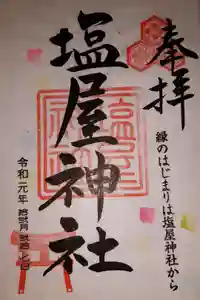 奉拝
縁のはじまりは塩屋神社から
塩屋神社
令和元年